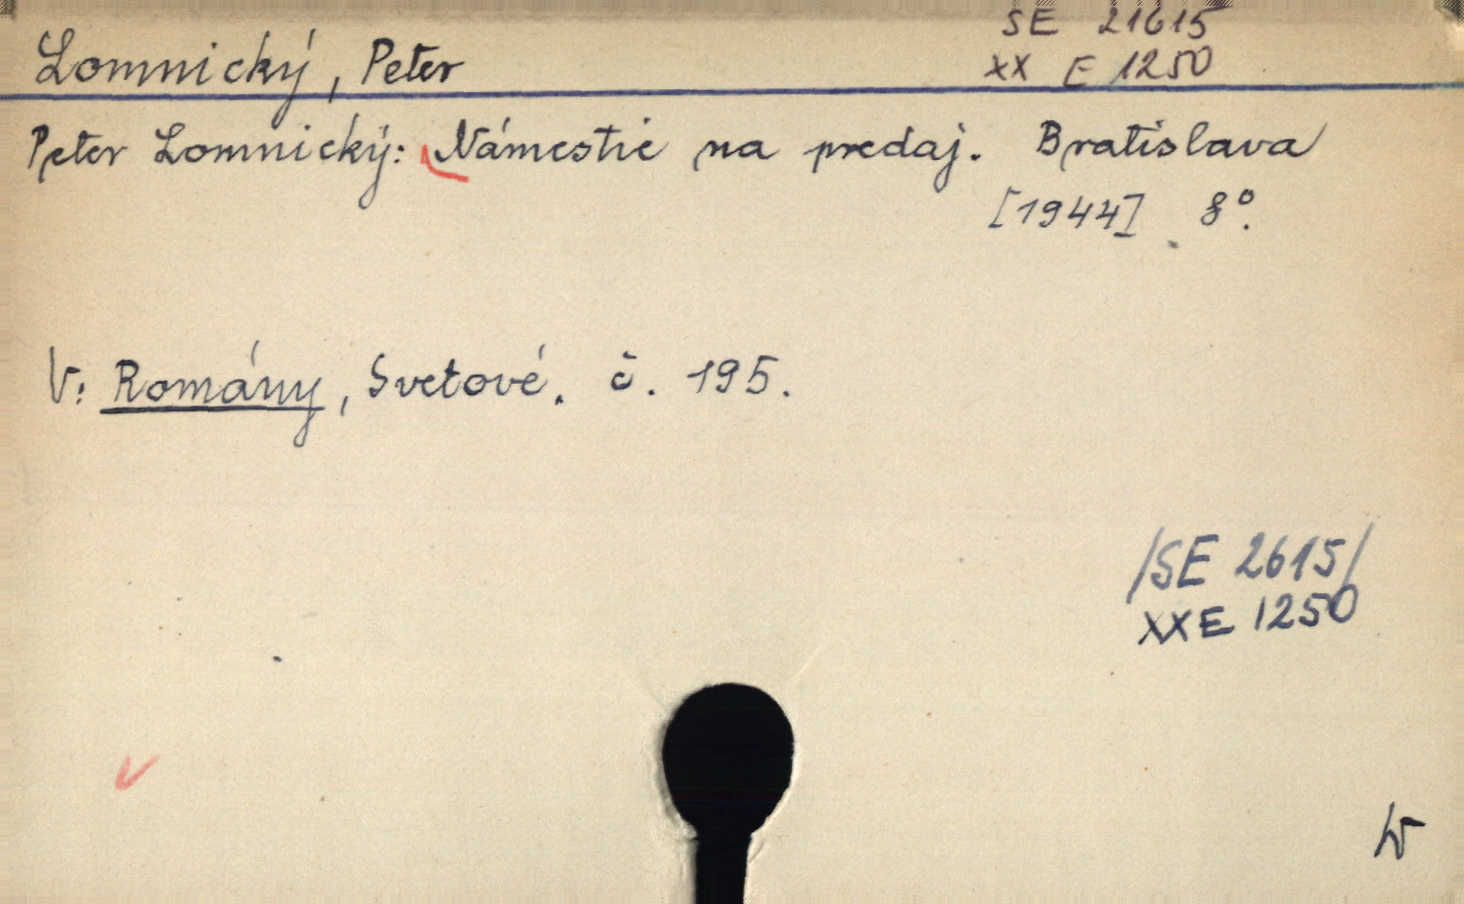 SE 21615
Lomnický, Peter XX E 1250
Peter Lomnický: Námestie na predaj. Bratislava
[1944] 8°.
V: Romány, Svetové. č. 195.
/SE 2615/
XXE 1250